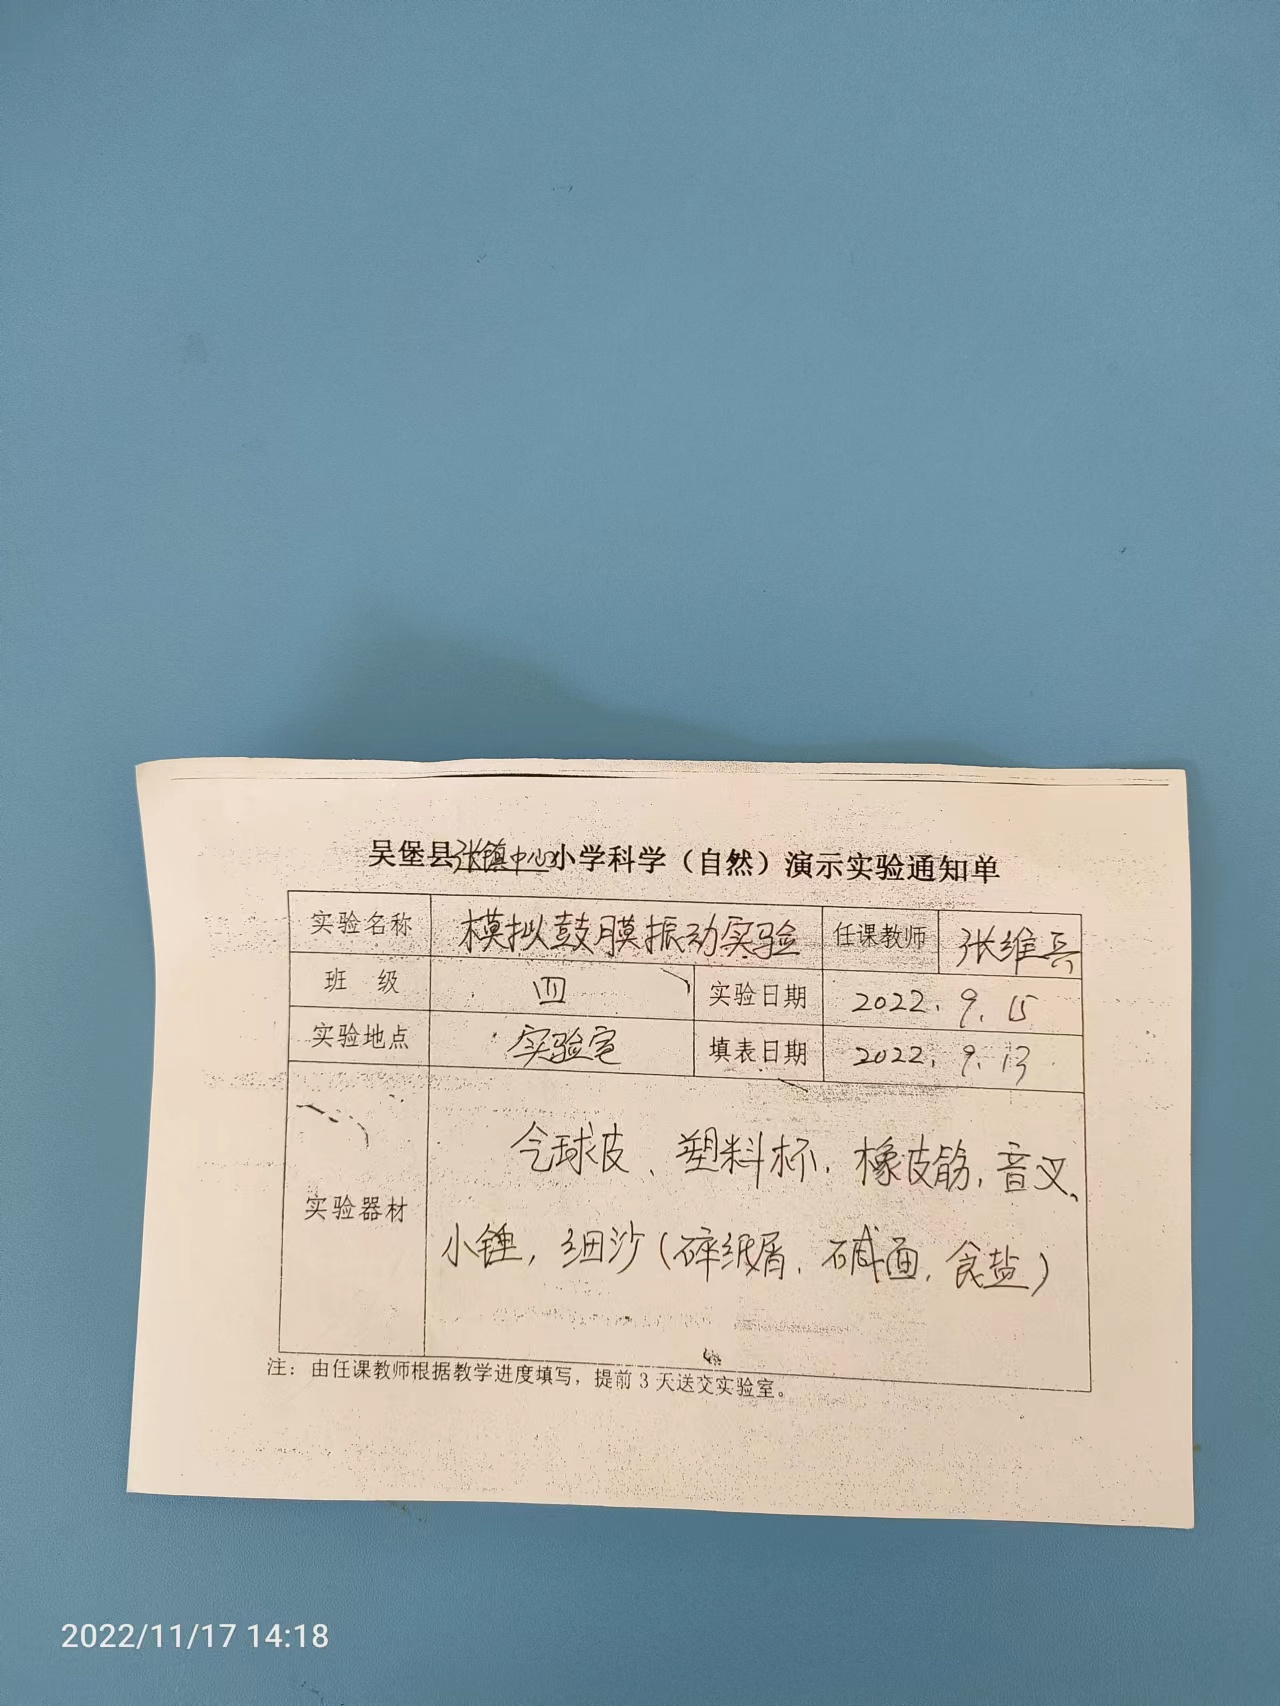 吴堡县张镇中心小学科学（自然）演示实验通知单
实验名称 模拟鼓膜振动实验 任课教师 张维兵
班 级 四 实验日期 2022.9.15
实验地点 实验室 填表日期 2022.9.13
实验器材
气球皮、塑料杯，橡皮筋，音叉、
小锤，细沙（碎纸屑，碱面，食盐）
注：由任课教师根据教学进度填写，提前 3 天送交实验室。
2022/11/17 14:18